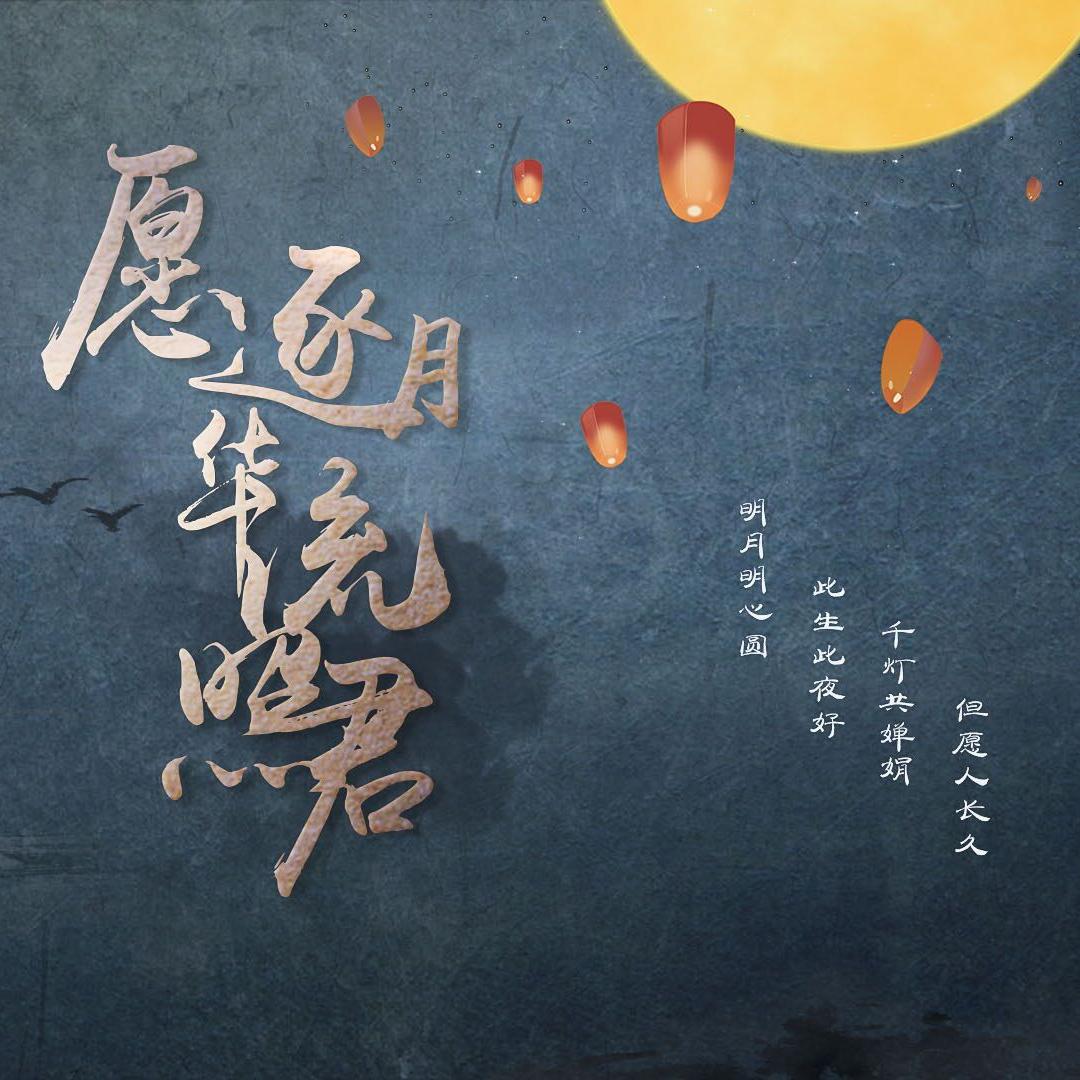 愿逐月
华流
照君
但愿人长久
千灯共婵娟
此生此夜好
明月明心圆